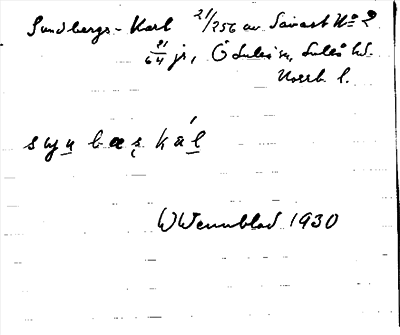 Sundbergs-Karl 21/256 av Saivast No 2
64 jr, Ö Luleå sn, Luleå hd.
Norrb. l.
synbæskál
W Wennblad 1930